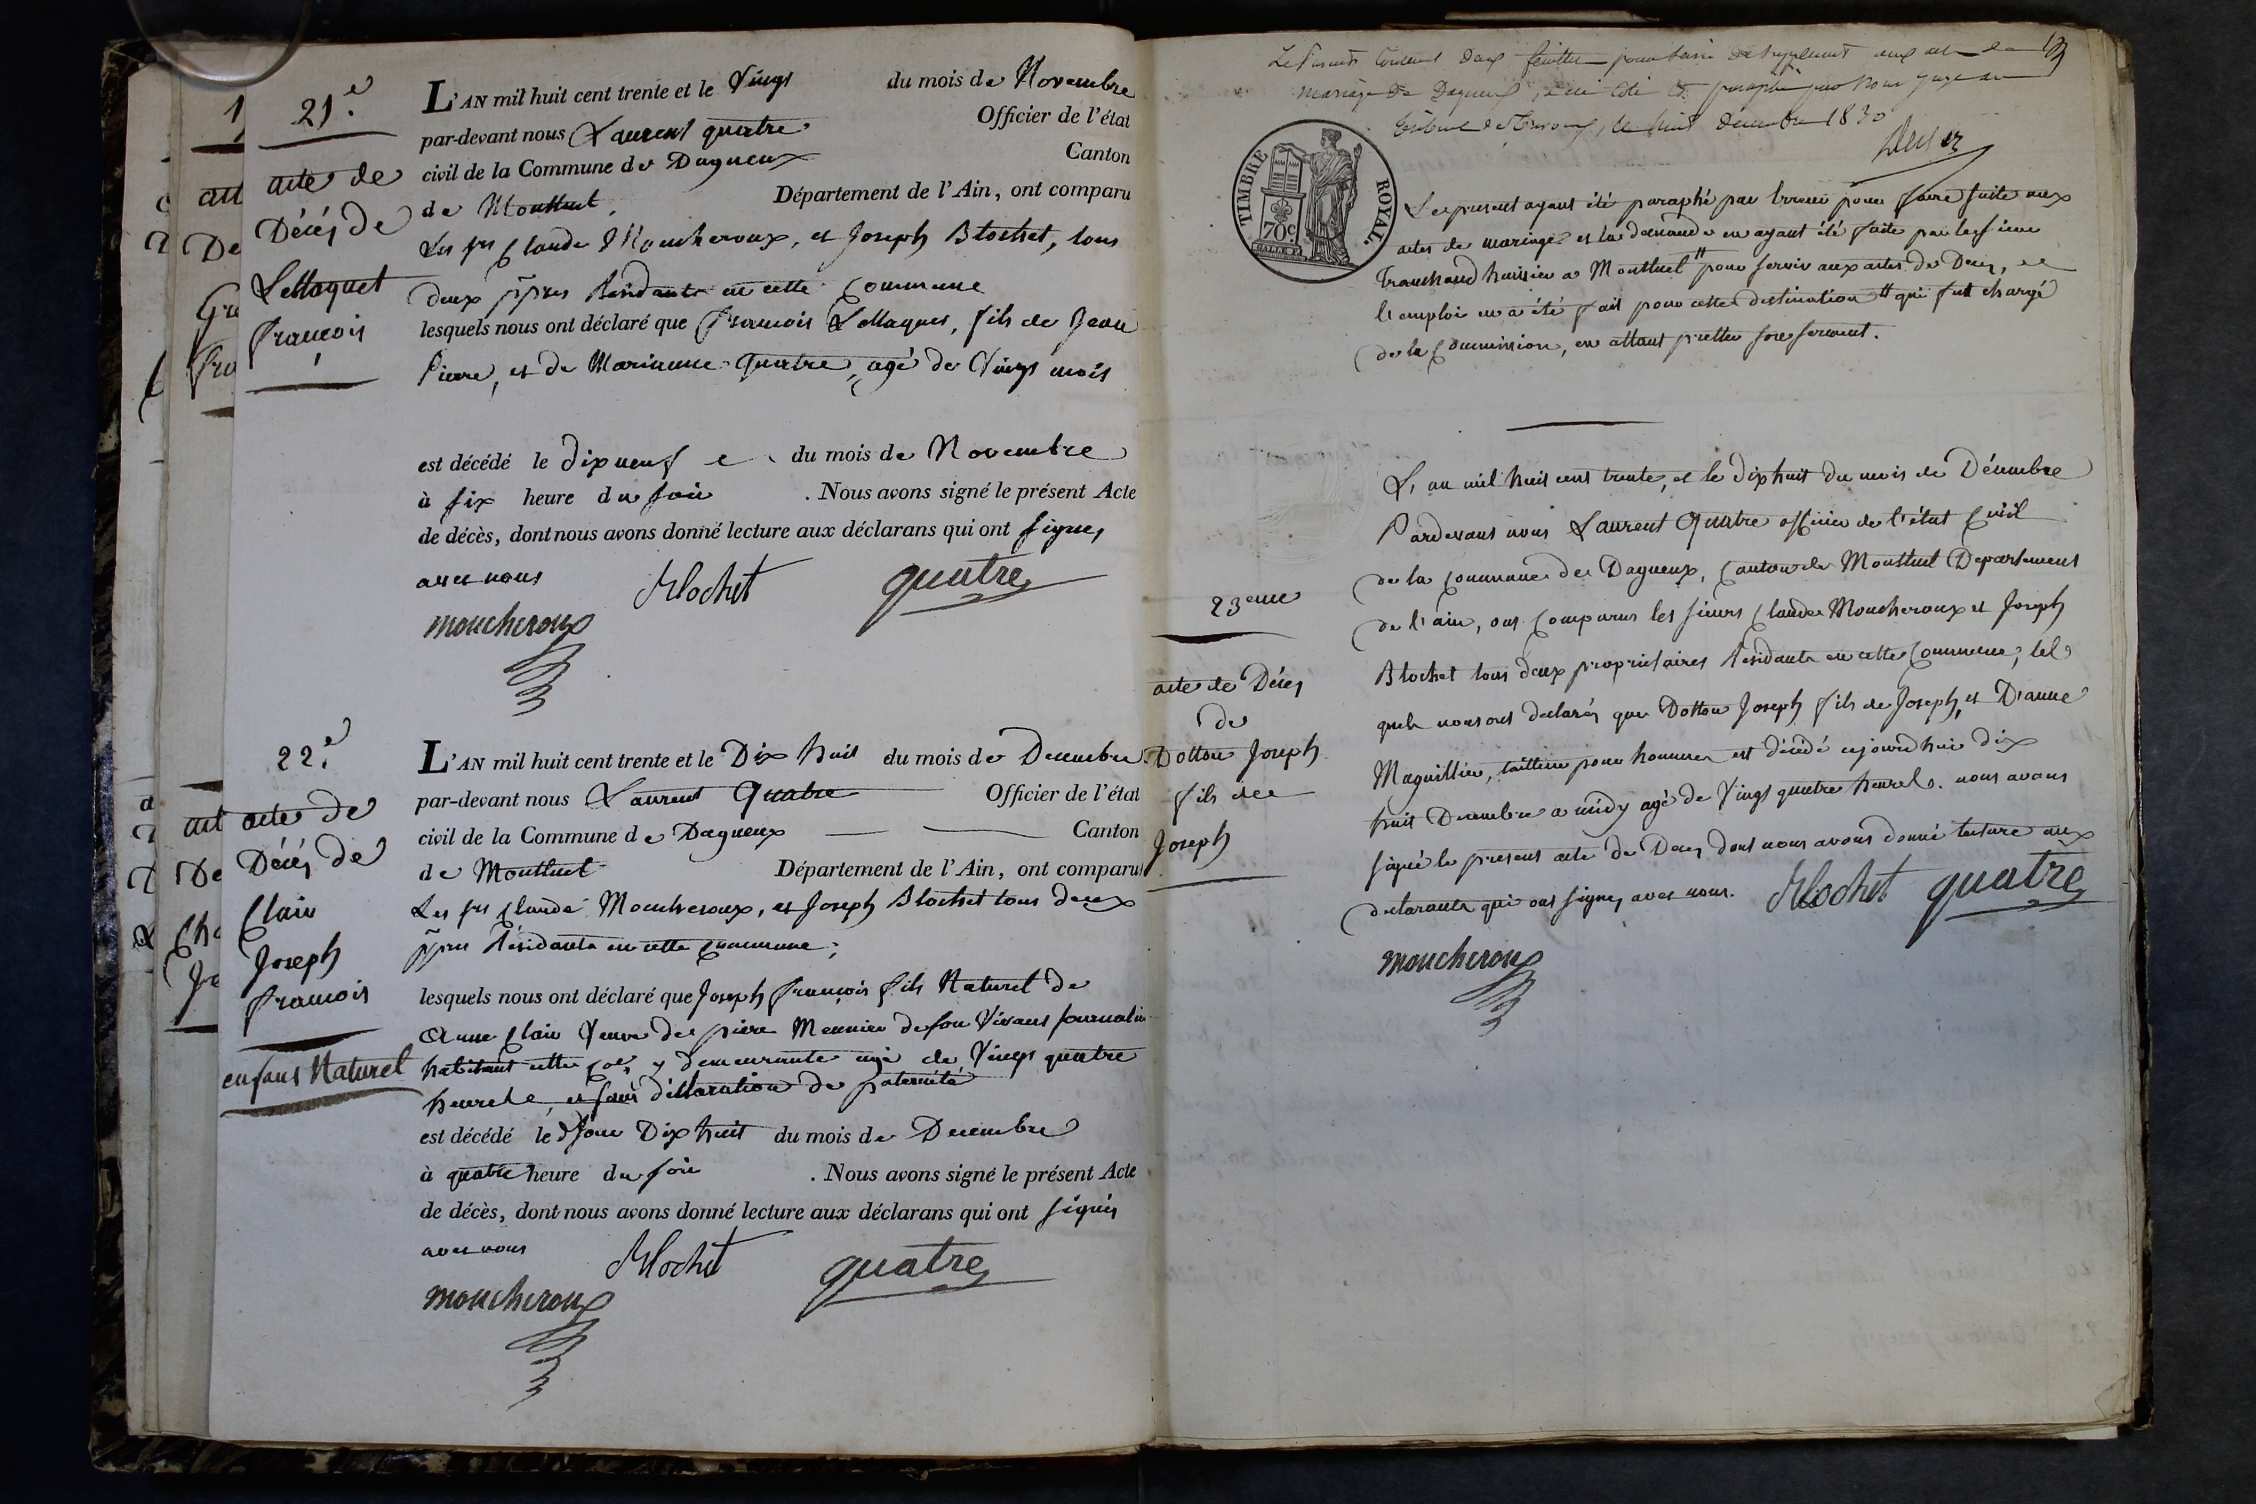 21e.
acte de
Décès de
Lellaquet
françois
L'AN mil huit cent trente et le Vingt du mois de Novembre
par-devant nous Laurent quatre Officier de l'état
civil de la Commune de Dagneux Canton
de Montluel Département de l'Ain, ont comparu
Les srs Claude Moucheroux, et Joseph Blochet, tous
deux ppres Résidants en cette Commune
lesquels nous ont déclaré que françois Lellaquet, fils de Jean
Pierre, et de Marianne quatre, agé de Vingt mois
est décédé le dix neuf du mois de Novembre
à six heure du soir . Nous avons signé le présent Acte
de décès, dont nous avons donné lecture aux déclarans qui ont signés
avec nous Blochet quatre
moucheroux
22e.
acte de
Décès de
Clair
Joseph
françois
enfant Naturel
L'AN mil huit cent trente et le Dix huit du mois de Decembre
par-devant nous Laurent Quatre Officier de l'état
civil de la Commune de Dagneux Canton
de Montluel Département de l'Ain, ont comparu
Les srs Claude Moucheroux, et Joseph Blochet tous deux
ppres Résidants en cette Commune;
lesquels nous ont déclaré que Joseph françois fils Naturel de
Anne Clair Veuve de pierre Meunier de son Vivant Journalier
habitant cette Coe y demeurante agé de Vingt quatre
heures, et sans déclaration de paternité
est décédé le Dix huit du mois de Decembre
à quatre heure du soir . Nous avons signé le présent Acte
de décès, dont nous avons donné lecture aux déclarans qui ont signés
avec nous Blochet quatre
moucheroux
Le Présent Contenant deux feuilles pour servir de supplement aux actes de
mariage de Dagneux, a été coté et paraphé par Nous juge au
tribunal de Trevoux, le huit decembre 1830
TIMBRE ROYAL.
70c
Le present ayant été paraphé par Erreur pour faire suite aux
actes de mariage et la demande en ayant été faite par le sieur
Tranchand huissier a Montluel pour servir aux actes de Deces, et
l'emploi en a été fait pour cette destination qui fut chargé
de la Commission, en allant pretter son serment.
23eme
acte de Décès
de
Dottou Joseph
fils de
Joseph
L'an mil huit cent trente, et le dix huit du mois de Décembre
Pardevant nous Laurent Quatre officier de l'état Civil
de la commune de Dagneux, Canton de Montluel Departement
de l'ain, ont Comparus les sieurs Claude Moucheroux et Joseph
Blochet tous deux proprietaires Residants en cette Commune, les
quels nous ont declarés que Dottou Joseph fils de Joseph, et D'anne
Maguillier, tailleur pour hommes est décédé aujourd'hui dix
huit Decembre a midy agé de Vingt quatre heures. nous avons
signé le present acte de Deces dont nous avons donné lecture aux
declarants qui ont signés avec nous. Blochet quatre
moucheroux